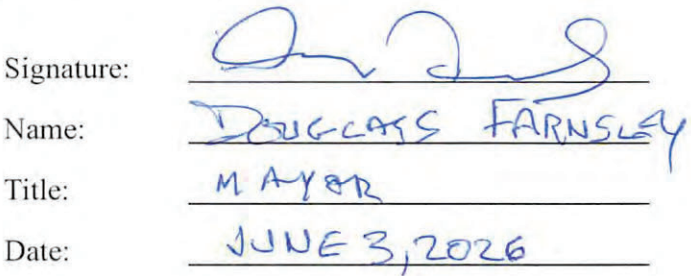 Signature:
Name: DOUGLASS FARNSLEY
Title: MAYOR
Date: JUNE 3, 2026